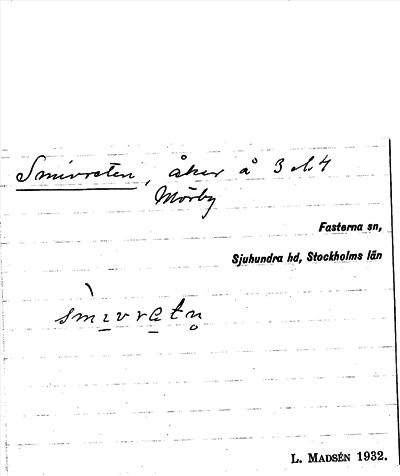 Smivreten, åker å 3 o. 4
Mörby
Fasterna sn,
Sjuhundra hd, Stockholms län
L. MADSÉN 1932.